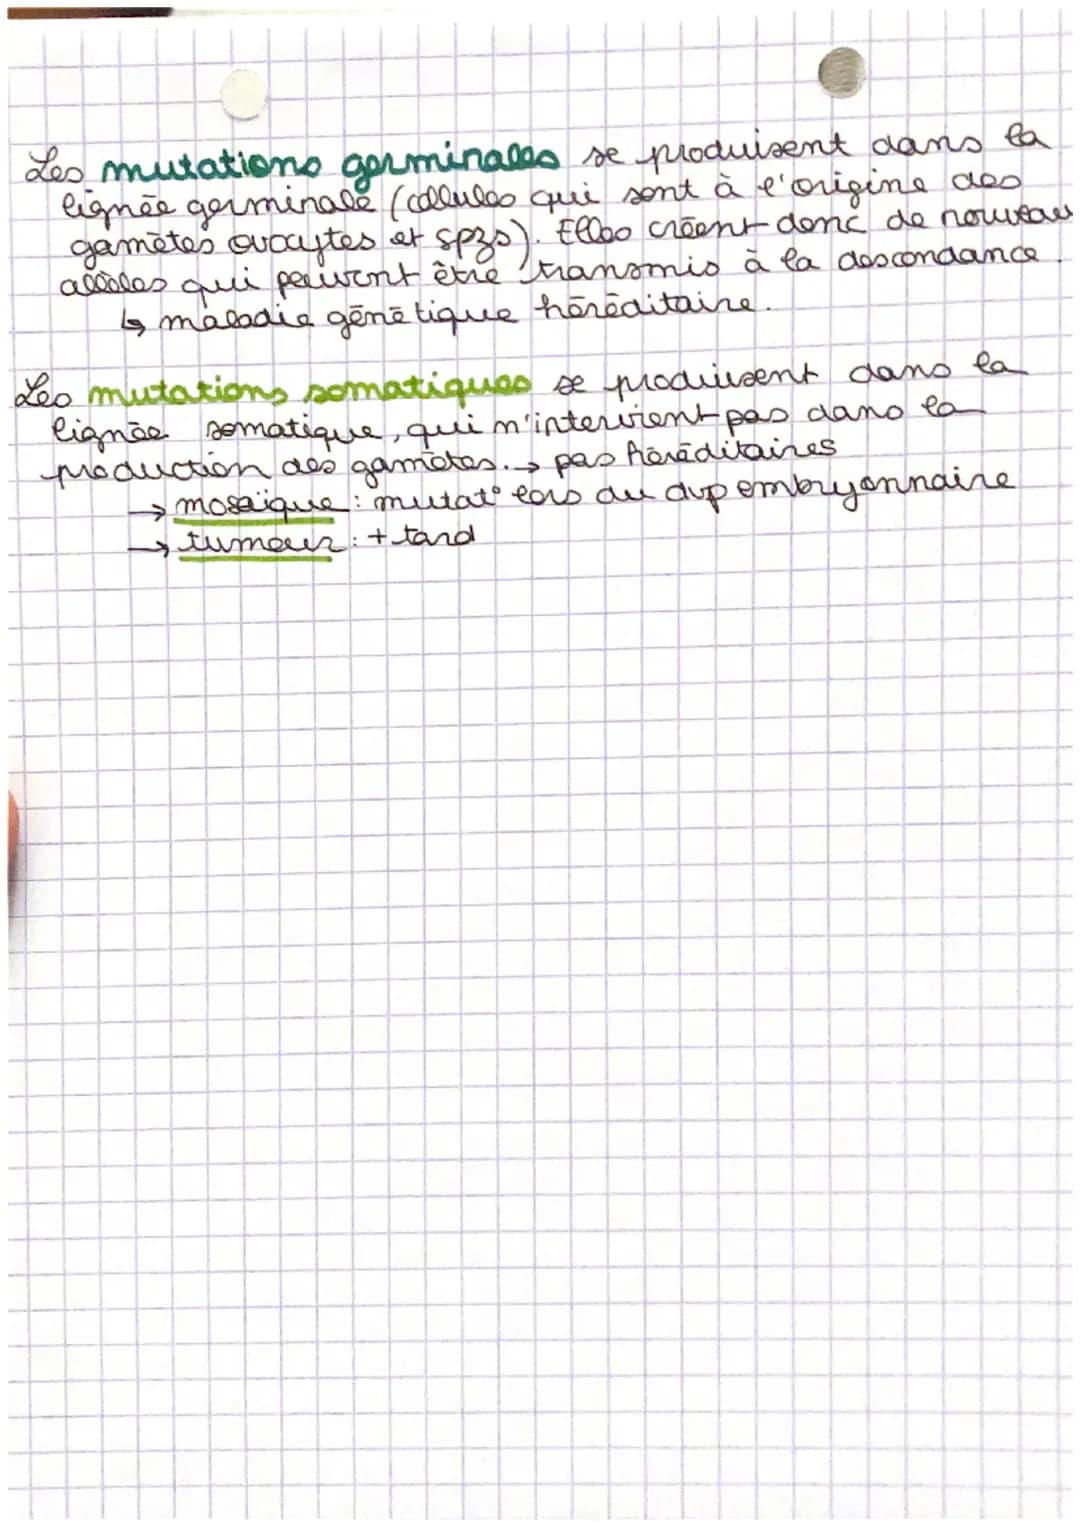 Les mutations germinales se produisent dans la
lignée germinale (cellules qui sont à l'origine des
gamètes ovocytes et spzs). Elles créent donc de nouveau
allèles qui peuvent être transmis à la descendance.
↳ maladie génétique héréditaire.
Les mutations somatiques se produisent dans la
lignée somatique, qui n'intervient pas dans la
production des gamètes. → pas héréditaires
→ mosaïque : mutat° lors du dvp embryonnaire
→ tumeur : + tard